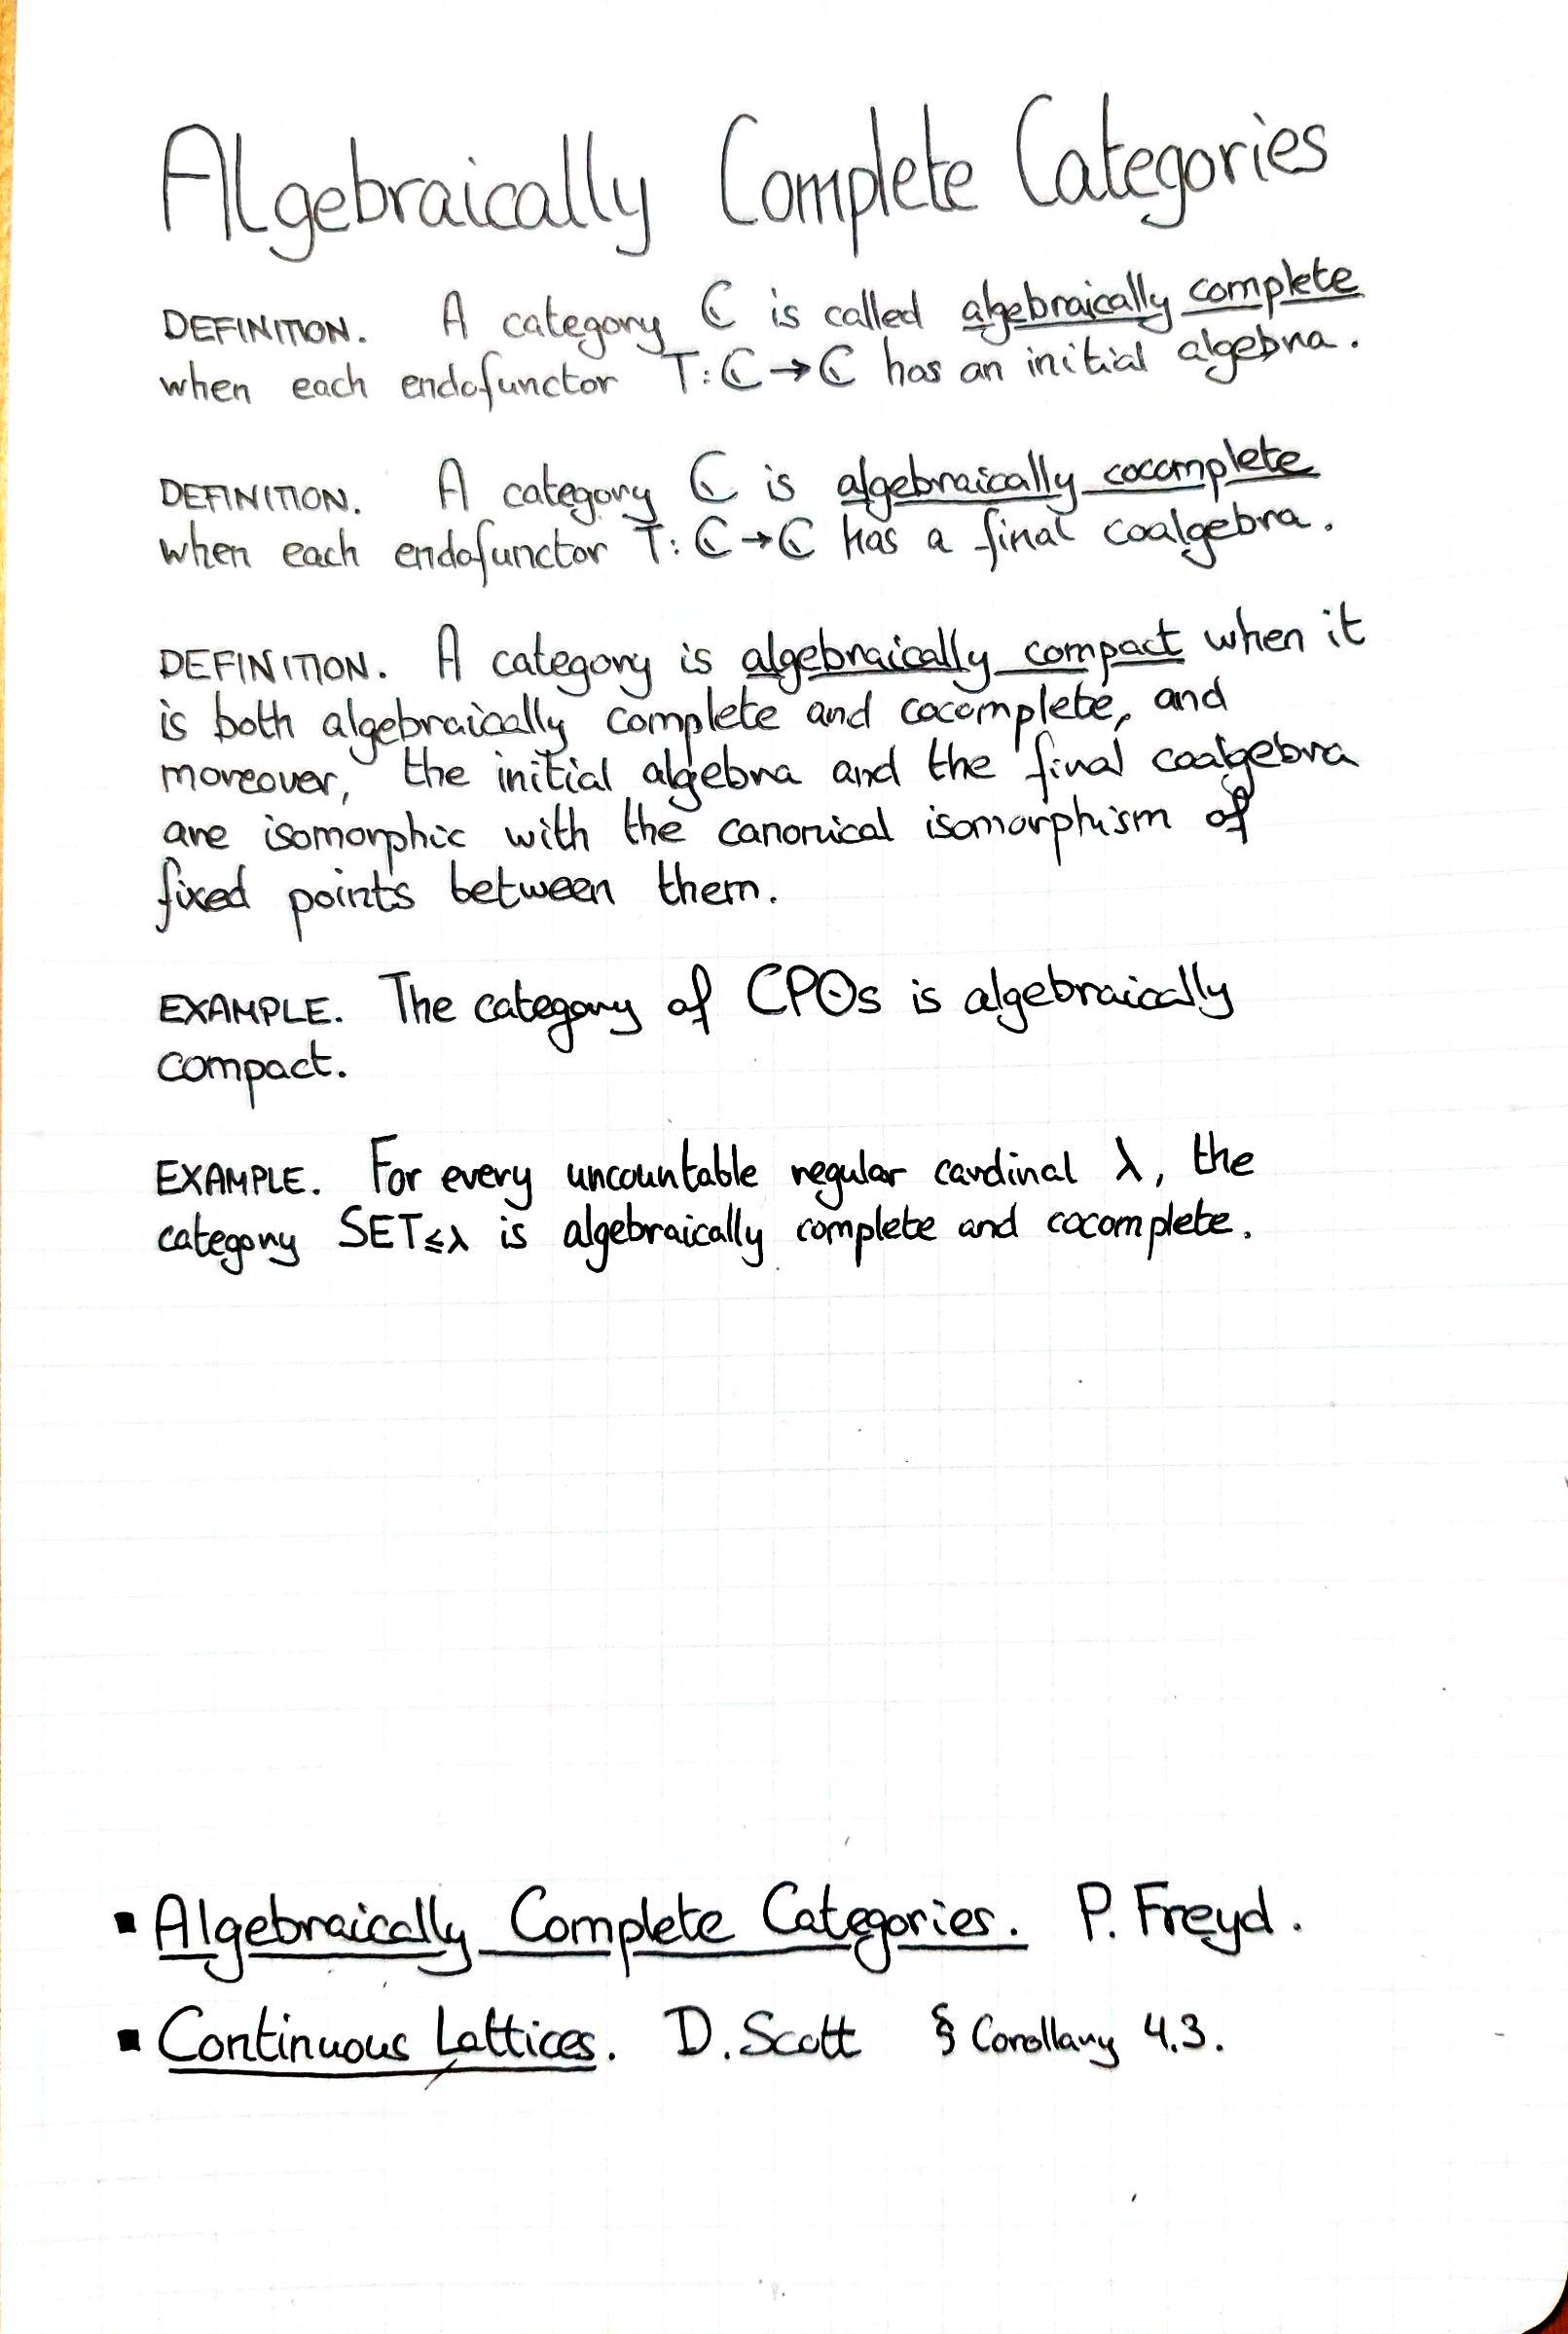 Algebraically Complete Categories
DEFINITION. A category ℂ is called algebraically complete
when each endofunctor T: ℂ → ℂ has an initial algebra.
DEFINITION. A category ℂ is algebraically cocomplete
when each endofunctor T: ℂ → ℂ has a final coalgebra.
DEFINITION. A category is algebraically compact when it
is both algebraically complete and cocomplete, and
moreover, the initial algebra and the final coalgebra
are isomorphic with the canonical isomorphism of
fixed points between them.
EXAMPLE. The category of CPOs is algebraically
compact.
EXAMPLE. For every uncountable regular cardinal λ, the
category SET≤λ is algebraically complete and cocomplete.
▪ Algebraically Complete Categories. P. Freyd.
▪ Continuous Lattices. D. Scott § Corollary 4.3.